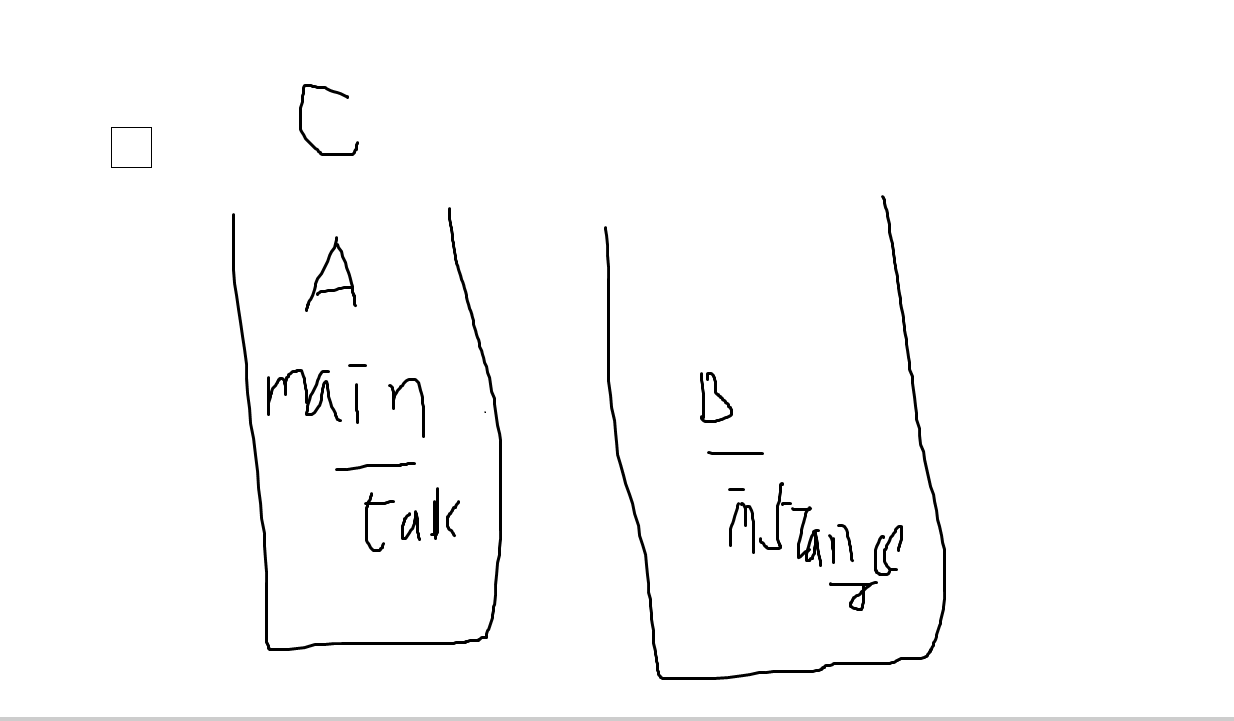 C
A
main
tak
B
instance